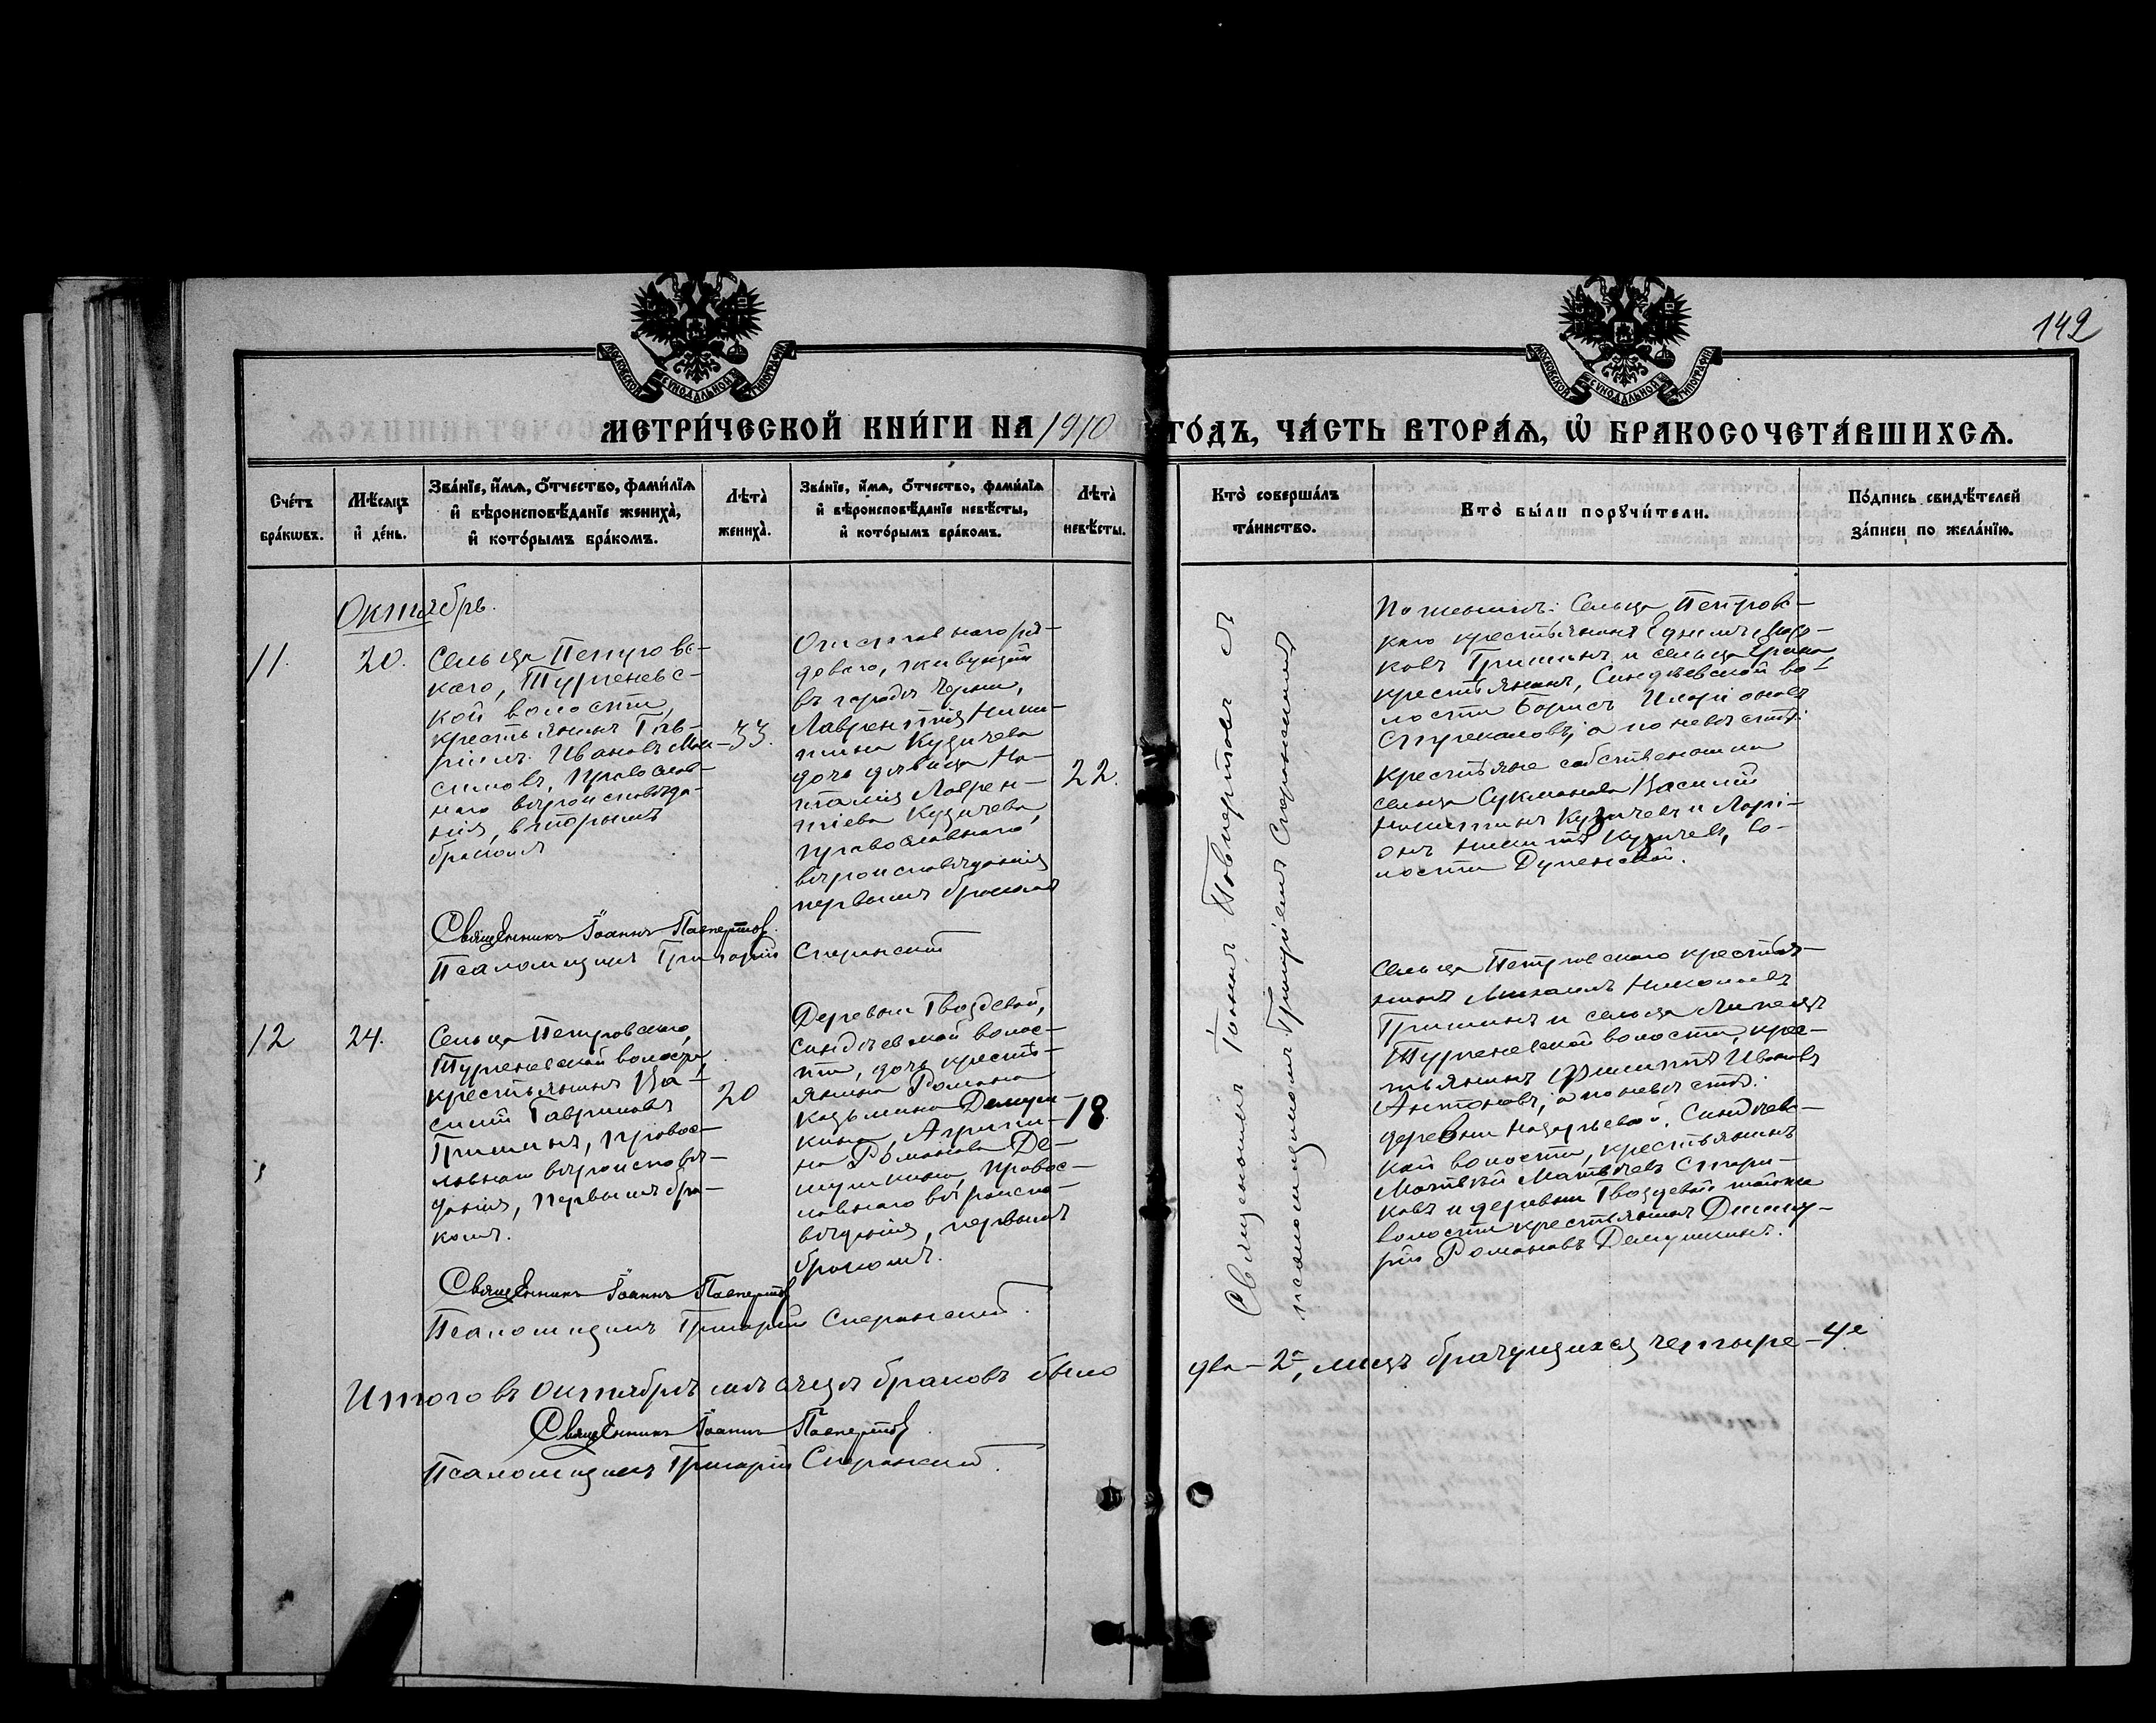 142
МОСКОВСКОЙ СѴНОДАЛЬНОЙ ТИПОГРАФІИ
МОСКОВСКОЙ СѴНОДАЛЬНОЙ ТИПОГРАФІИ
МЕТРИ́ЧЕСКОЙ КНИ́ГИ НА 1910 ГО́ДЪ, ЧА́СТЬ ВТОРА́Ѧ, Ѡ҆ БРАКОСОЧЕТА́ВШИХСѦ.
Сче́тъ бра́кѡвъ.
Мѣ́сѧцъ и҆ де́нь.
Зва́нїе, и҆́мѧ, ѻ҆́тчество, фами́лїѧ и҆ вѣроисповѣ́данїе жениха̀, и҆ кото́рымъ бра́комъ.
Лѣта̀ жениха̀.
Зва́нїе, и҆́мѧ, ѻ҆́тчество, фами́лїѧ и҆ вѣроисповѣ́данїе невѣ́сты, и҆ кото́рымъ бра́комъ.
Лѣта̀ невѣ́сты.
Кто̀ соверша́лъ та́инство.
Кто̀ бы́ли порꙋчи́тели.
По́дпись свидѣ́телей за́писи по жела́нїю.
Октябрь.
11.
20.
Сельца Петровс-
каго, Тургеневс-
кой волости,
крестьянинъ Гав-
рiилъ Ивановъ
православ-
наго вѣроисповѣда-
нія, вторымъ
бракомъ
33.
Отставного ря-
дового, живущій
въ городѣ Черни,
Лаврентія Ники-
тина Кузичева
дочь дѣвица На-
талія Лаврен-
тіева Кузичева
православнаго
вѣроисповѣданія
первымъ бракомъ
22.
Священникомъ Іоанномъ съ
псаломщикомъ Григоріемъ Сперанскимъ
По женихѣ: Сельца Петровс-
каго крестьянинъ
Гришинъ и сельца
крестьянинъ, Синдѣевской во-
лости Борисъ Иларіоновъ
а по невѣстѣ:
крестьяне собственники
сельца Сукманова Василій
Никитинъ Кузичевъ и
Никитинъ Кузичевъ, во-
лости Дупенской.
Священникъ Іоаннъ
Псаломщикъ Григорій Сперанскій
12
24.
Сельца Петровскаго,
Тургеневской волости
крестьянинъ Ва-
силій Гавриловъ
Гришинъ, правос-
лавнаго вѣроисповѣ-
данія, первымъ бра-
комъ.
20
Деревни Гвоздевой,
Синдѣевской волос-
ти, дочь кресть-
янина Романа
Козьмина Демуш-
кина, Агрипи-
на Романова Де-
мушкина, правос-
лавнаго вѣроиспо-
вѣданія, первымъ
бракомъ.
18.
Сельца Петровскаго крестья-
нинъ Михаилъ Николаевъ
Гришинъ и сельца Липецъ
Тургеневской волости, крес-
тьянинъ Филиппъ Ивановъ
Антоновъ; а по невѣстѣ:
деревни Назарьевой, Синдѣевс-
кой волости, крестьянинъ
Матвѣй Матвѣевъ Стари-
ковъ и деревни Гвоздевой той же
волости крестьянинъ Димит-
рій Романовъ Демушкинъ.
Священникъ Іоаннъ
Псаломщикъ Григорій Сперанскій.
Итого въ октябрѣ мѣсяцѣ браковъ было два - 2, лицъ брачущихся четыре - 4е
Священникъ Іоаннъ
Псаломщикъ Григорій Сперанскій.